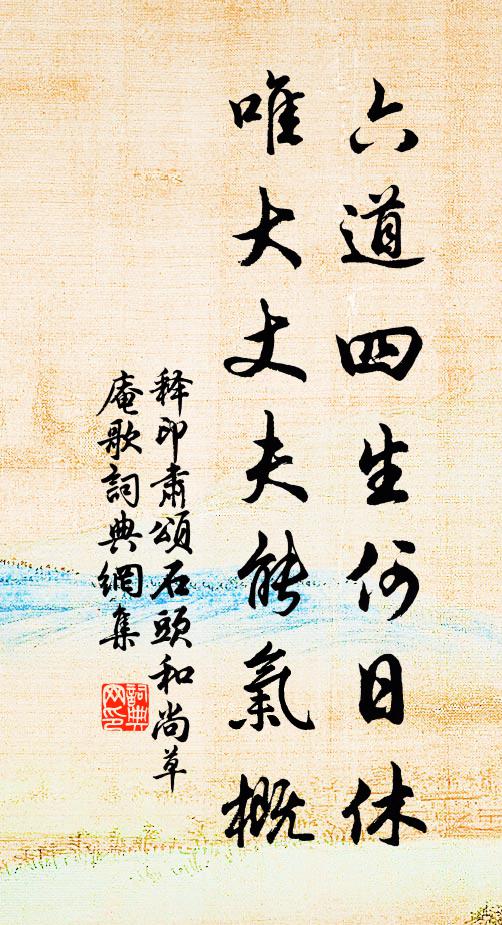 六道四生何日休
唯大丈夫能氣概
释印肅頌石頭和尚草
庵歌詞典網集
詞典
网印